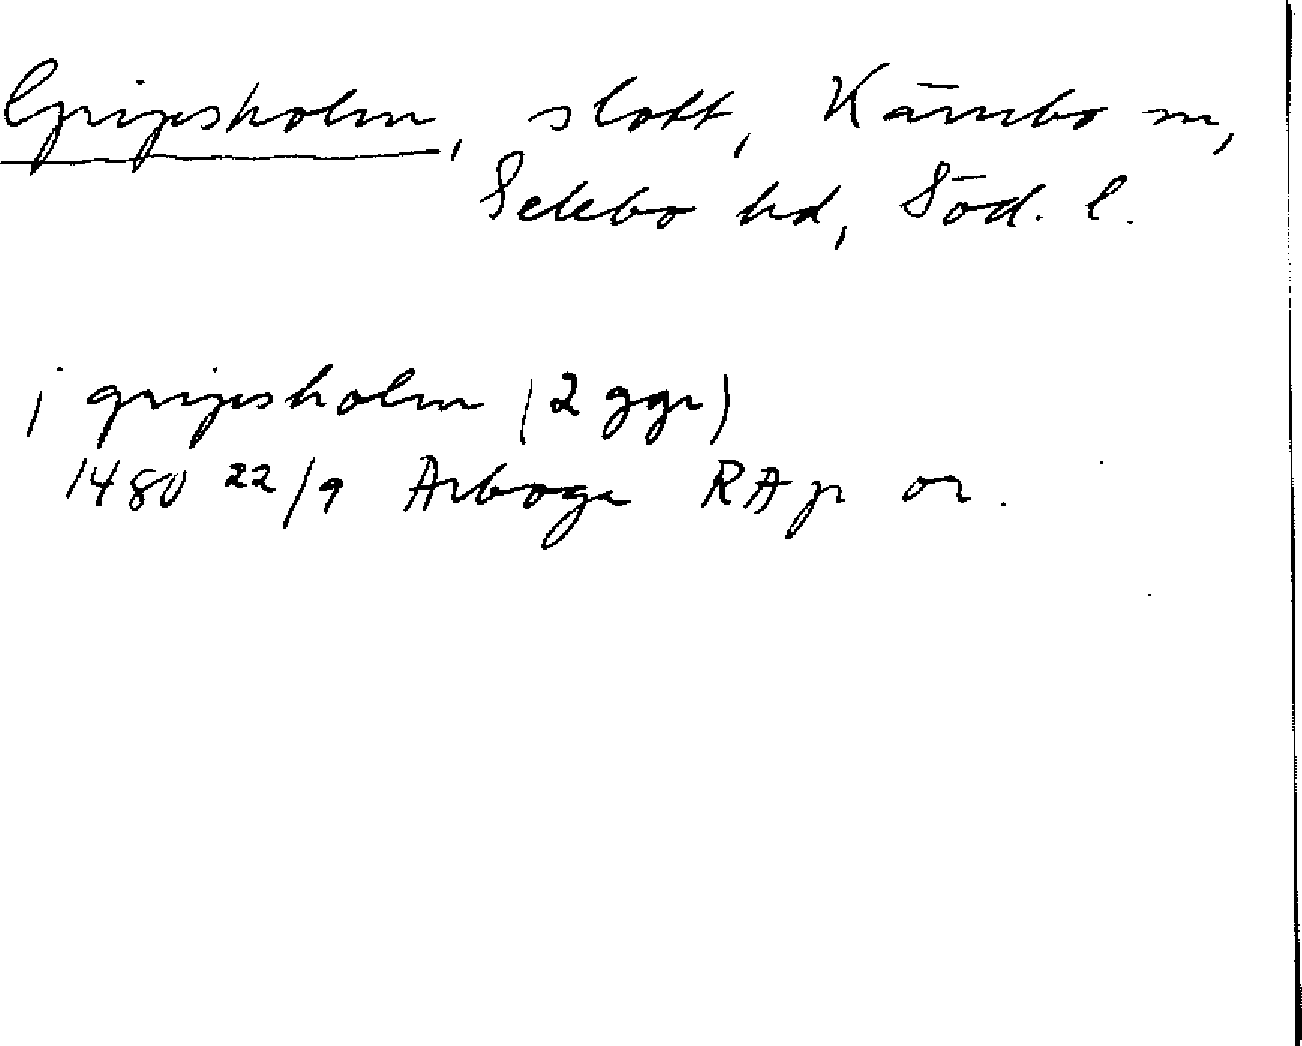 Gripsholm, slott, Kärnbo sn,
Selebo hd, Söd. l.
i gripsholm (2 ggr)
1480 22/9 Arboga RAp or.